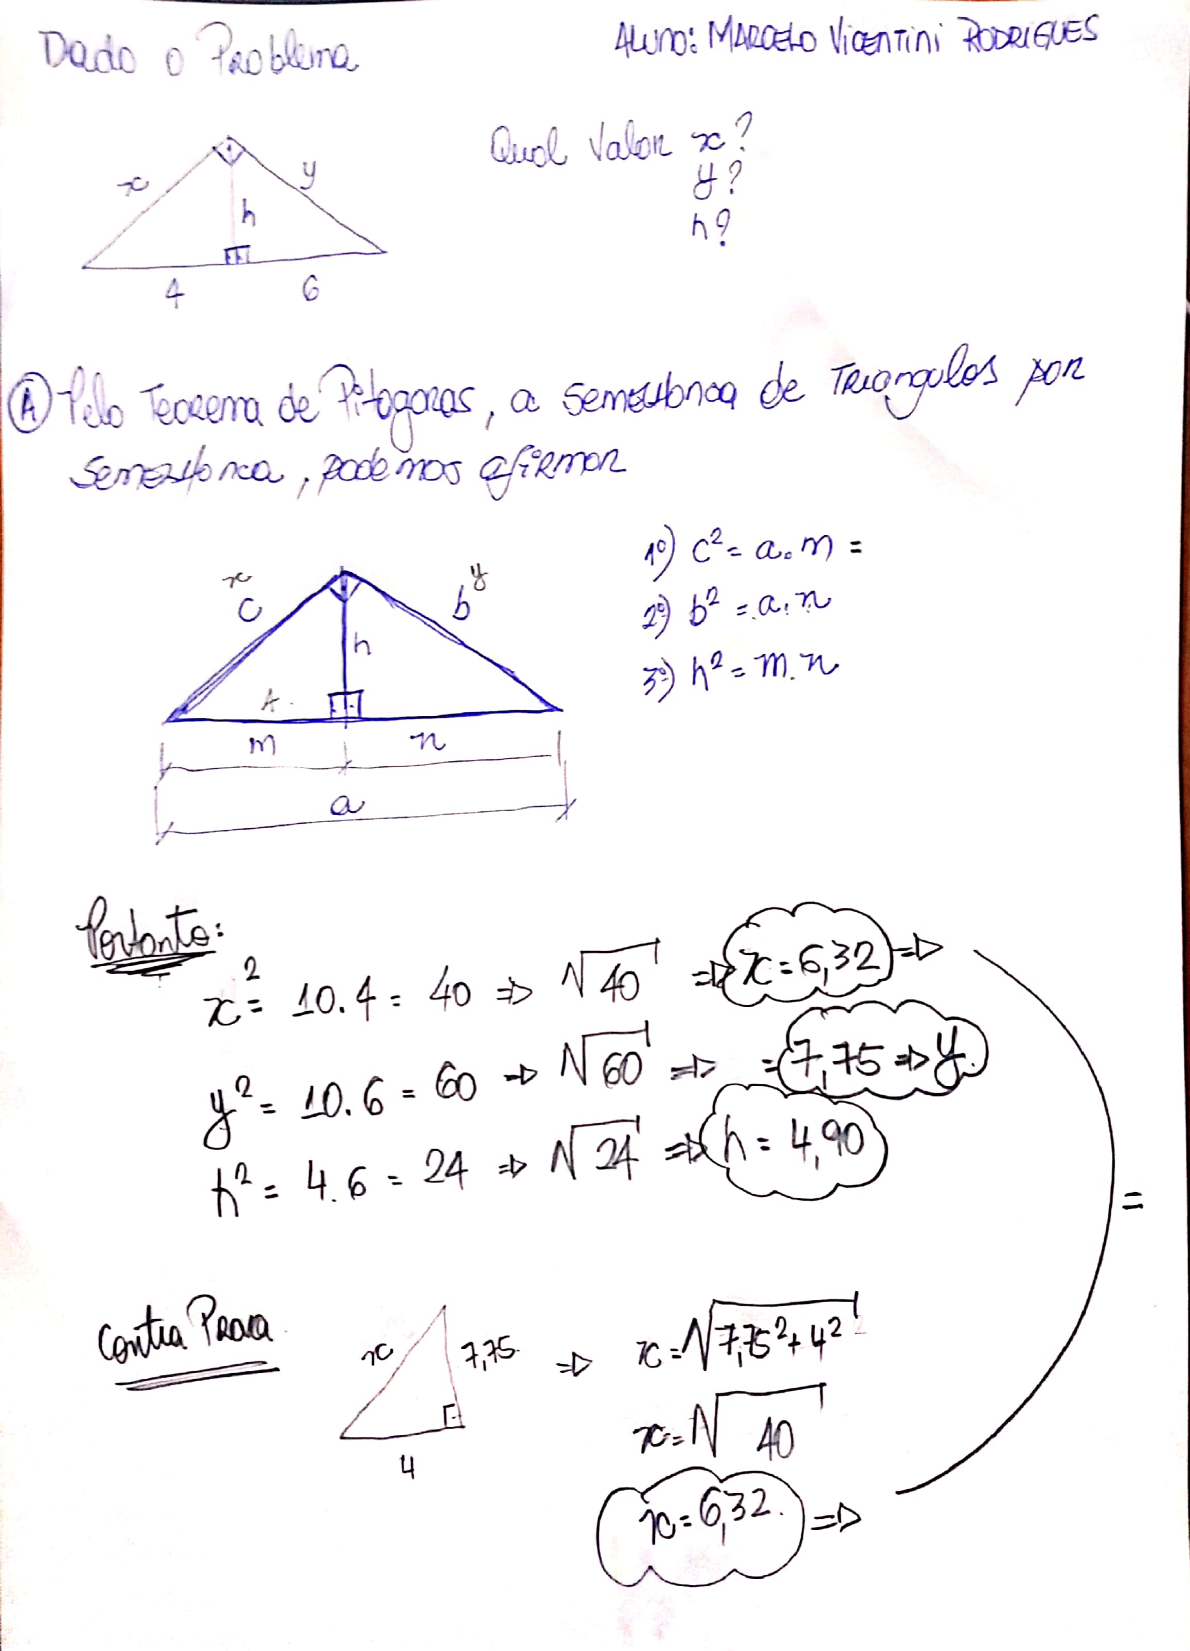 Dado o Problema
Aluno: MARCELO VICENTINI RODRIGUES
Qual Valor x?
y?
h?
x
y
h
4
6
A Pelo Teorema de Pitagoras, a semelhança de Triangulos por
Semelhança, podemos afirmar
1º) c² = a.m =
2º) b² = a.n
3º) h² = m.n
x
c
y
b
h
A.
m
n
a
Portanto:
x² = 10.4 = 40 ⇒ √40 ⇒ x = 6,32 ⇒
y² = 10.6 = 60 ⇒ √60 ⇒ = 7,75 ⇒ y.
h² = 4.6 = 24 ⇒ √24 ⇒ h = 4,90
=
Contra Prova
x
7,75
4
⇒ x = √7,75² + 4²
x = √40
x = 6,32. ⇒